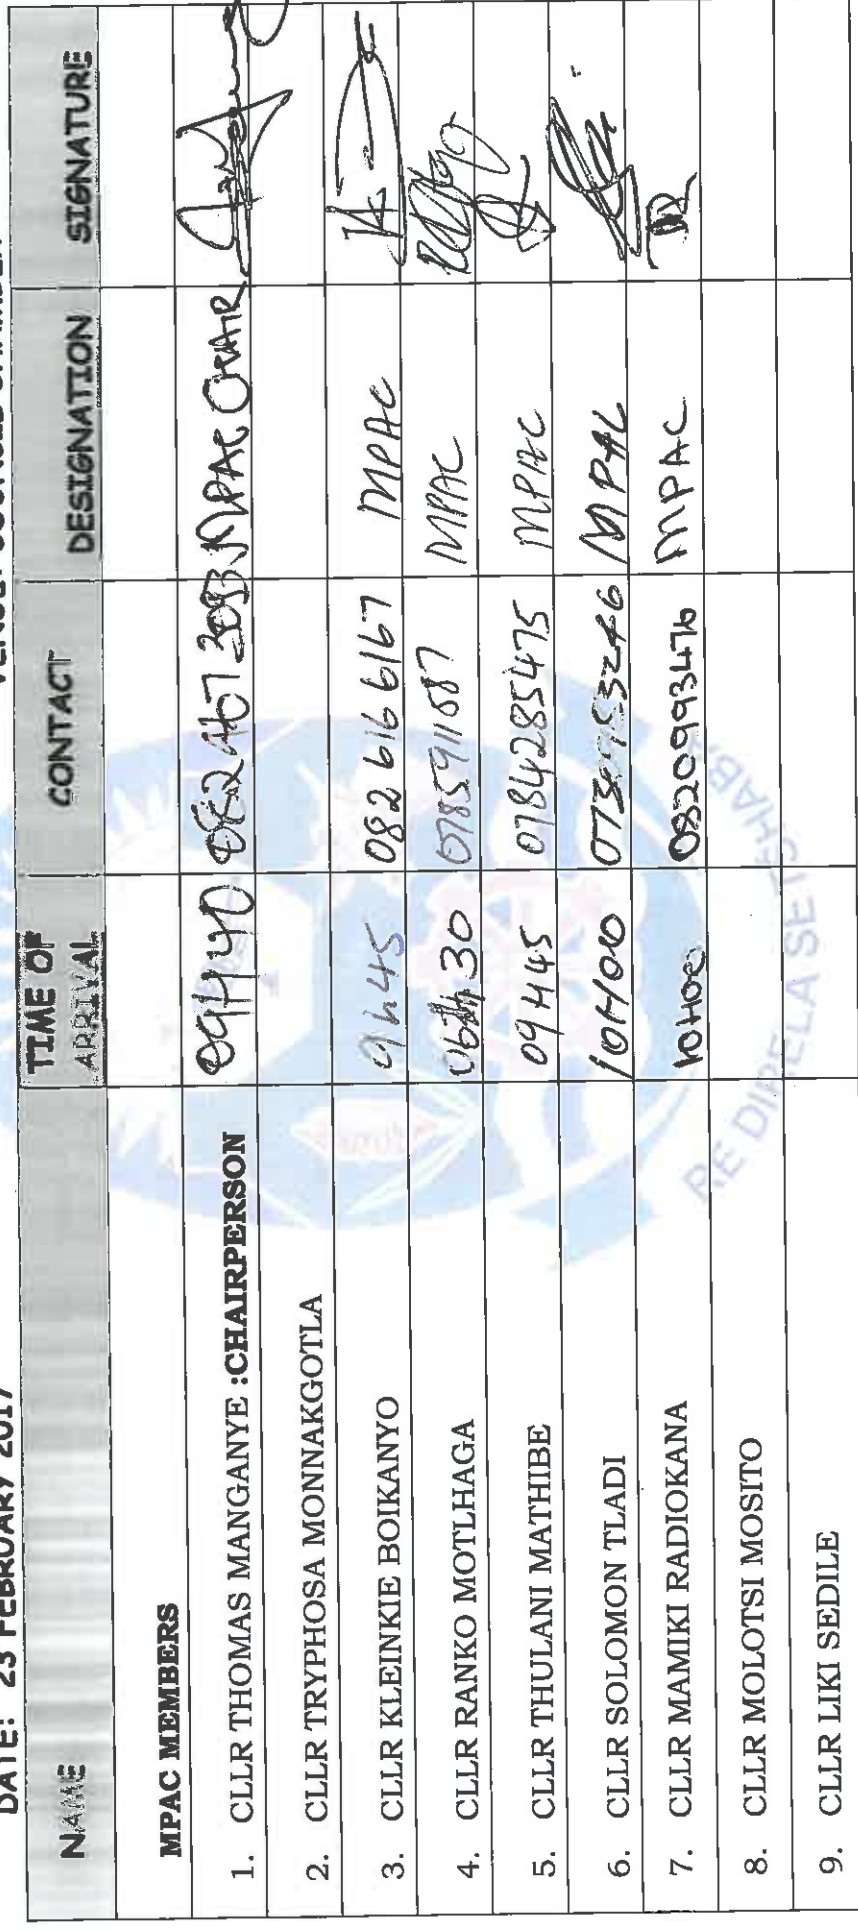 DATE: 23 FEBRUARY 2017
NAME TIME OF ARRIVAL CONTACT DESIGNATION SIGNATURE
MPAC MEMBERS
1. CLLR THOMAS MANGANYE :CHAIRPERSON 09H40 082 467 3093 MPAC CHAIR
2. CLLR TRYPHOSA MONNAKGOTLA
3. CLLR KLEINKIE BOIKANYO 9h45 082 616 6167 MPAC
4. CLLR RANKO MOTLHAGA 30 MPAC
5. CLLR THULANI MATHIBE 09H45 0784285475 MPAC
6. CLLR SOLOMON TLADI 10H00 MPAC
7. CLLR MAMIKI RADIOKANA 10H00 0820993476 MPAC
8. CLLR MOLOTSI MOSITO
9. CLLR LIKI SEDILE
RE DIRELA SETCHABA